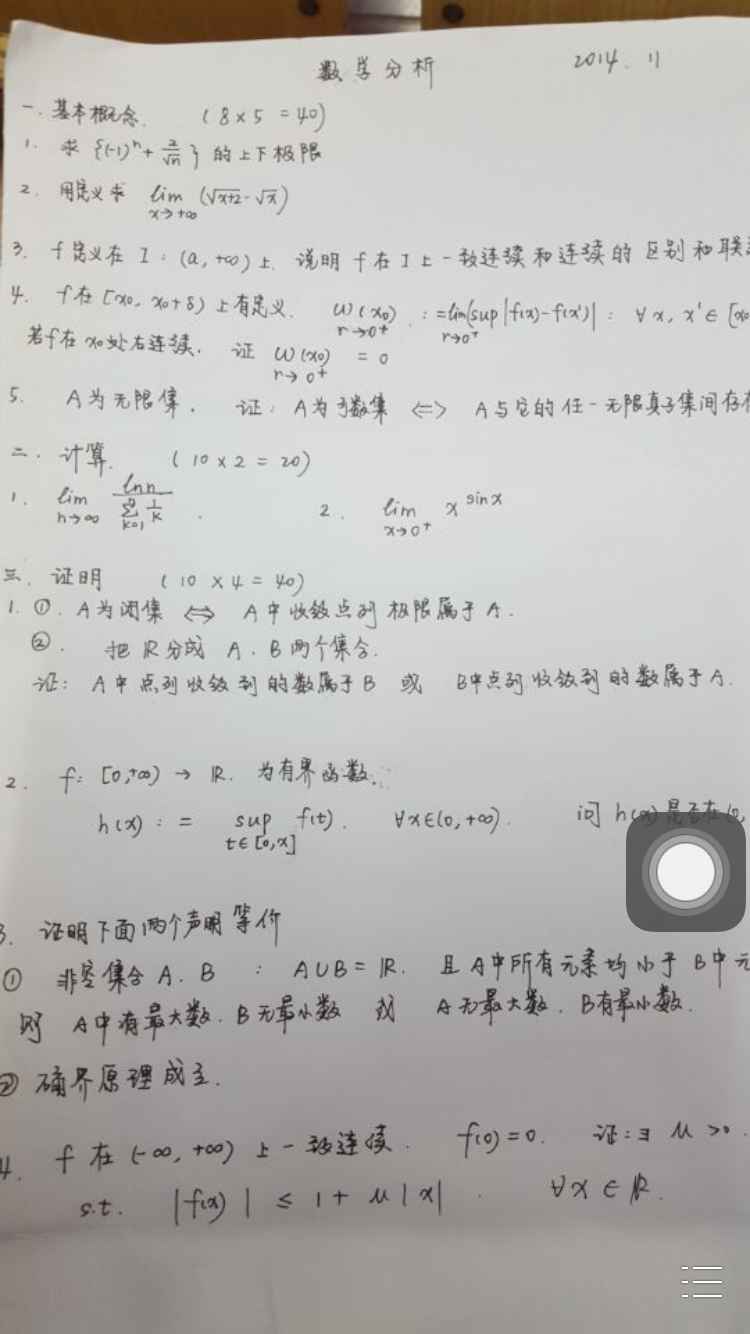 数学分析 2014.11
一.基本概念. (8×5=40)
1. 求{(-1)^n+2/√n}的上下极限
2. 用定义求 lim x→+∞ (√x+2-√x)
3. f定义在I:(a,+∞)上.说明f在I上一致连续和连续的区别和联
4. f在[x0,x0+δ)上有定义. ω(x0) r→0+ :=lim r→0+ (sup|f(x)-f(x')|: ∀x,x'∈[x0
若f在x0处右连续. 证 ω(x0) r→0+ =0
5. A为无限集. 证:A为可数集 ⇔ A与它的任一无限真子集间存在
二.计算. (10×2=20)
1. lim n→∞ lnn/∑k=1 n 1/k . 2. lim x→0+ x^sinx
三.证明 (10×4=40)
1.①.A为闭集 ⇔ A中收敛点列极限属于A.
②. 把ℝ分成A.B两个集合.
证: A中点列收敛到的数属于B 或 B中点列收敛到的数属于A.
2. f:[0,+∞)→ℝ. 为有界函数.
h(x):= sup t∈[0,x] f(t). ∀x∈(0,+∞). 问h(x)是否在(0,
3. 证明下面两个声明等价
① 非空集合A.B : A∪B=ℝ. 且A中所有元素均小于B中元
则 A中有最大数.B无最小数 或 A无最大数.B有最小数.
② 确界原理成立.
4. f在(-∞,+∞)上一致连续. f(0)=0. 证:∃ M>0.
s.t. |f(x)|≤1+M|x|. ∀x∈ℝ.